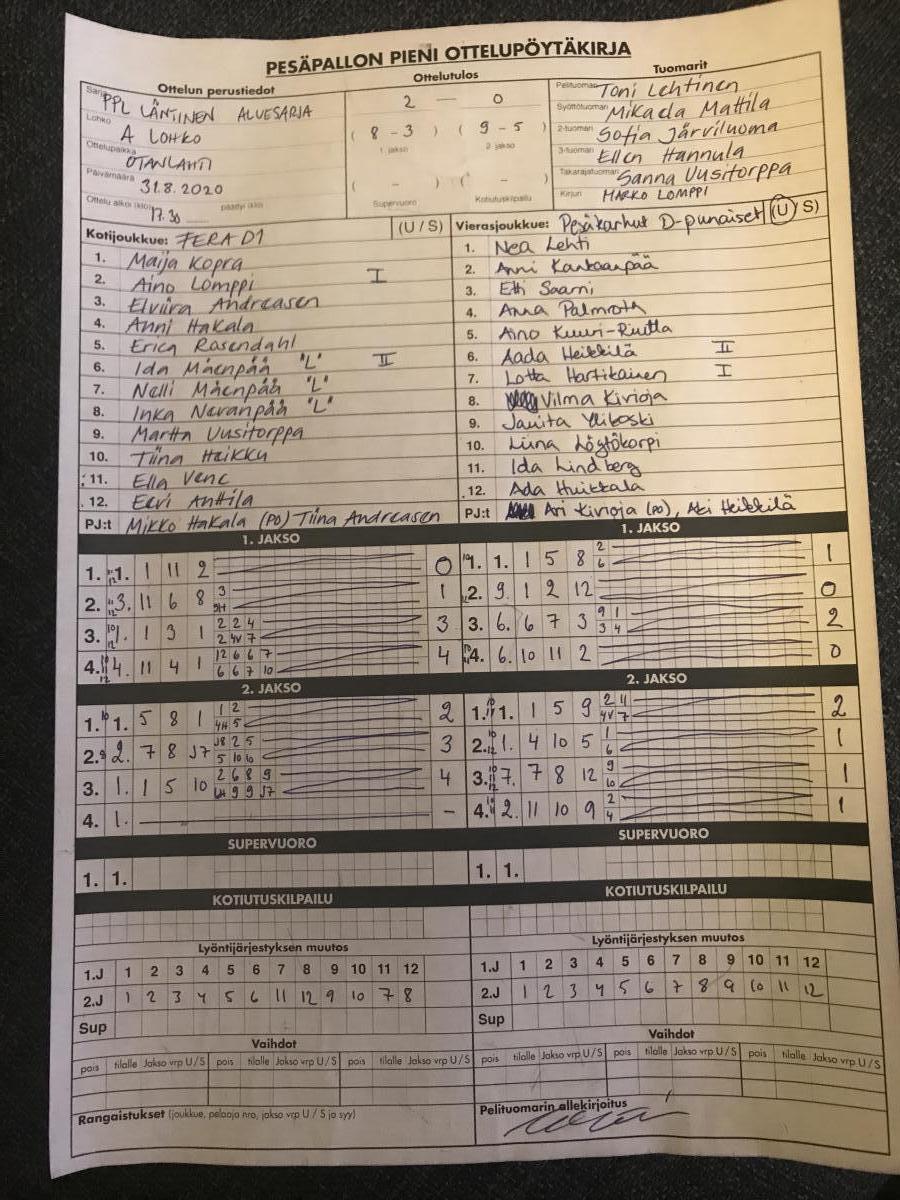 PESÄPALLON PIENI OTTELUPÖYTÄKIRJA
Ottelun perustiedot
Ottelutulos
Tuomarit
Sarja PPL LÄNTINEN ALUESARJA
Lohko A LOHKO
Ottelupaikka OTANLAHTI
Päivämäärä 31.8.2020
Ottelu alkoi (klo) 17.30 päättyi (klo)
2 — 0
( 8 - 3 ) ( 9 - 5 )
1. jakso 2. jakso
( - ) ( - )
Supervuoro Kotiutuskilpailu
Pelituomari Toni Lehtinen
Syöttötuomari Mikaela Mattila
2-tuomari Sofia Järviluoma
3-tuomari Ellen Hannula
Takarajatuomari Sanna Uusitorppa
Kirjuri MARKO LOMPPI
Kotijoukkue: FERA D1 (U / S)
1. Maija Kopra
2. Aino Lomppi I
3. Elviira Andreasen
4. Anni Hakala
5. Erica Rosendahl
6. Ida Mäenpää "L" II
7. Nelli Mäenpää "L"
8. Inka Nevanpää "L"
9. Martta Uusitorppa
10. Tiina Heikku
11. Ella Vene
12. Eevi Anttila
PJ:t Mikko Hakala (PO) Tiina Andreasen
Vierasjoukkue: Pesäkarhut D-punaiset (U / S)
1. Nea Lehti
2. Anni Kantaanpää
3. Etti Saarni
4. Anna Palmroth
5. Aino Kuuri-Riutta
6. Aada Heikkilä II
7. Lotta Hartikainen I
8. Vilma Kivioja
9. Janita Yliboski
10. Liina Löytökorpi
11. Ida Lindberg
12. Ada Huikkala
PJ:t Ari Kivioja (PO), Aki Heikkilä
1. JAKSO
1. 1. 1 11 2 0
2. 3. 11 6 8 3 1
3. 1. 1 3 1 2 2 4 2 4V 7 3
4. 4. 11 4 1 12 6 6 7 6 6 7 10 4
1. JAKSO
1. 1. 1 5 8 2 6 1
2. 9. 1 2 12 0
3. 6. 6 7 3 9 1 3 4 2
4. 6. 10 11 2 0
2. JAKSO
1. 1. 5 8 1 1 2 4H 5 2
2. 2. 7 8 J7 J8 2 5 5 10 10 3
3. 1. 1 5 10 2 6 8 9 9 9 J7 4
4. 1. -
2. JAKSO
1. 1. 1 5 9 2 11 4V 7 2
2. 1. 4 10 5 1 6 1
3. 7. 7 8 12 9 10 1
4. 2. 11 10 9 2 4 1
SUPERVUORO
1. 1.
SUPERVUORO
1. 1.
KOTIUTUSKILPAILU
KOTIUTUSKILPAILU
Lyöntijärjestyksen muutos
1.J 1 2 3 4 5 6 7 8 9 10 11 12
2.J 1 2 3 4 5 6 11 12 9 10 7 8
Sup
Lyöntijärjestyksen muutos
1.J 1 2 3 4 5 6 7 8 9 10 11 12
2.J 1 2 3 4 5 6 7 8 9 10 11 12
Sup
Vaihdot
pois tilalle Jakso vrp U / S pois tilalle Jakso vrp U / S pois tilalle Jakso vrp U / S
Vaihdot
pois tilalle Jakso vrp U / S pois tilalle Jakso vrp U / S pois tilalle Jakso vrp U / S
Rangaistukset (joukkue, pelaaja nro, jakso vrp U / S ja syy)
Pelituomarin allekirjoitus